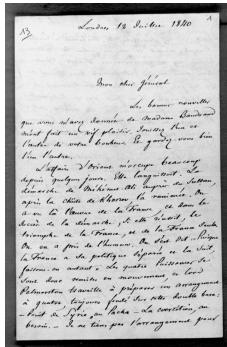 13
1
Londres 12 Juillet 1840
Mon cher Général
Les bonnes nouvelles
que vous m'avez données de Madame Baudrand
m'ont fait un vif plaisir. Jouissez bien
l'un de votre bonheur. Et gardez vous bien
l'un l'autre.
L'affaire d'Orient m'occupe beaucoup
depuis quelques jours. Elle languissait. La
démarche de Méhémet Ali auprès du Sultan,
après la chute de Khosrew l'a ranimée. On
a vu là l'œuvre de la France, et dans le
succès de la démarche, si elle réussit, le
triomphe de la France, et de la France seule.
On en a pris de l'humeur. On s'est dit: Puisque
la France a sa politique séparée et la suit,
faisons en autant. Les quatre Puissances se
sont donc remises en mouvement et lord
Palmerston travaille à préparer un arrangement
à quatre, toujours fondé sur cette double base:
Syrie au Pacha. La coercition, au
besoin. Je ne tiens pas l'arrangement pour